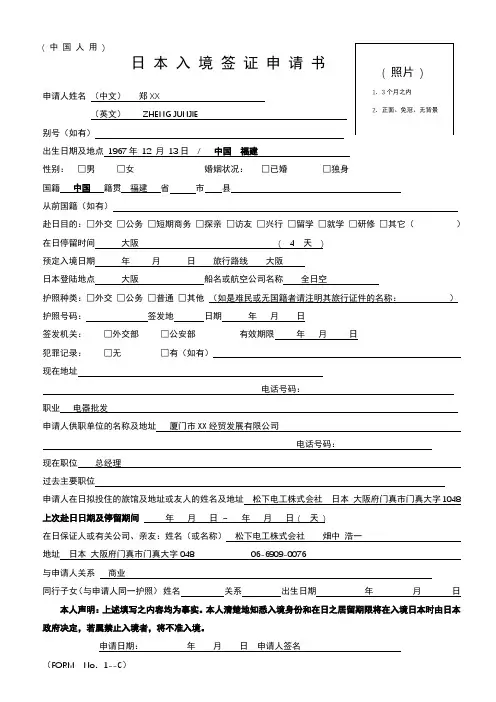 ( 中 国 人 用 )
日 本 入 境 签 证 申 请 书
( 照片 )
1. 3个月之内
2. 正面、免冠、无背景
申请人姓名 (中文) 郑XX
(英文) ZHENG JUNJIE
别号(如有)
出生日期及地点 1967年 12 月 13日 / 中国 福建
性别: □男 □女 婚姻状况: □已婚 □独身
国籍 中国 籍贯 福建 省 市 县
从前国籍(如有)
赴日目的:□外交 □公务 □短期商务 □探亲 □访友 □兴行 □留学 □就学 □研修 □其它( )
在日停留时间 大阪 ( 4 天 )
预定入境日期 年 月 日 旅行路线 大阪
日本登陆地点 大阪 船名或航空公司名称 全日空
护照种类:□外交 □公务 □普通 □其他 (如是难民或无国籍者请注明其旅行证件的名称: )
护照号码: 签发地 日期 年 月 日
签发机关: □外交部 □公安部 有效期限 年 月 日
犯罪记录: □无 □有(如有)
现在地址
电话号码:
职业 电器批发
申请人供职单位的名称及地址 厦门市XX经贸发展有限公司
电话号码:
现在职位 总经理
过去主要职位
申请人在日拟投住的旅馆及地址或友人的姓名及地址 松下电工株式会社 日本 大阪府门真市门真大字1048
上次赴日日期及停留期间 年 月 日 ~ 年 月 日 ( 天 )
在日保证人或有关公司、亲友:姓名(或名称) 松下电工株式会社 畑中 浩一
地址 日本 大阪府门真市门真大字048 06-6909-0076
与申请人关系 商业
同行子女(与申请人同一护照) 姓名 关系 出生日期 年 月 日
本人声明:上述填写之内容均为事实。本人清楚地知悉入境身份和在日之居留期限将在入境日本时由日本
政府决定,若属禁止入境者,将不准入境。
申请日期: 年 月 日 申请人签名
(FORM No. 1--C)